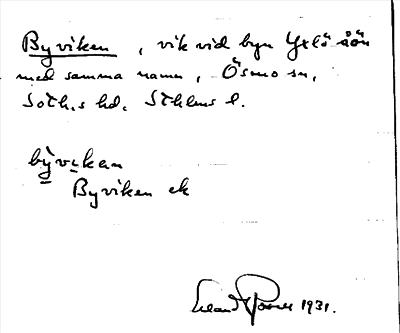 Byviken, vik vid byn Yxlö å ön
med samma namn, Ösmo sn,
Soth.s hd. Sthlms l.
by̆vikan
Byviken ek
1931.